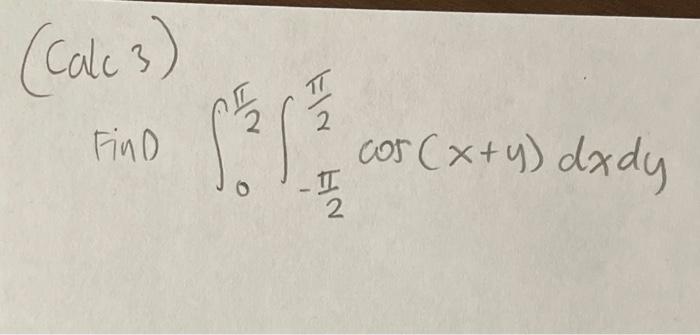 (Calc 3)
Find ∫₀^{π/2} ∫_{-π/2}^{π/2} cos(x+y) dxdy